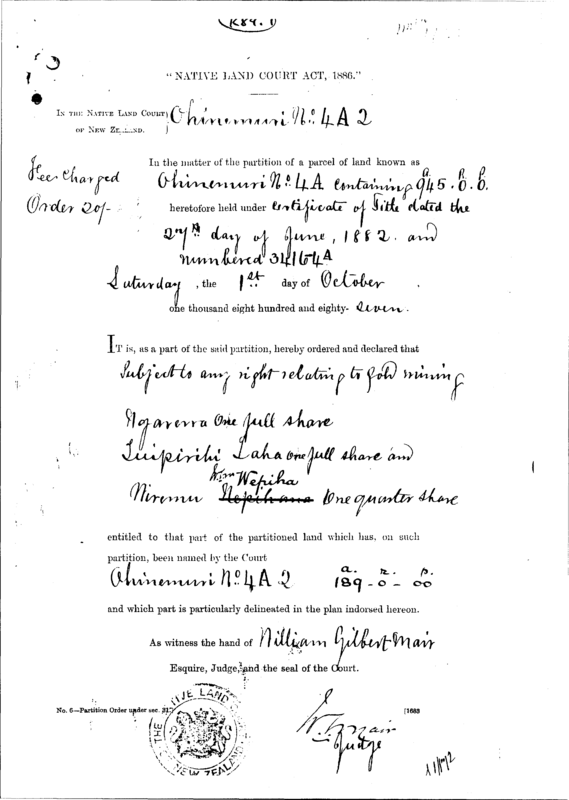 K84. D
"NATIVE LAND COURT ACT, 1886."
IN THE NATIVE LAND COURT OF NEW ZEALAND. Ohinemuri No. 4A2
Fee Charged
Order 20/-
In the matter of the partition of a parcel of land known as
Ohinemuri No. 4A containing 945 a. 0 r. 0 p.
heretofore held under Certificate of Title dated the
27th day of June, 1882. and
numbered
Saturday, the 1st day of October
one thousand eight hundred and eighty-seven.
IT IS, as a part of the said partition, hereby ordered and declared that
Subject to any right relating to gold mining
one full share
Taha one full share and
Wm Wepiha
one quarter share
entitled to that part of the partitioned land which has, on such
partition, been named by the Court
Ohinemuri No. 4A2 a. r. p. 189-0-00
and which part is particularly delineated in the plan indorsed hereon.
As witness the hand of William Gilbert Mair
Esquire, Judge, and the seal of the Court.
No. 6—Partition Order under sec.
[1683
THE NATIVE LAND
NEW ZEALAND
W. G. Mair
Judge